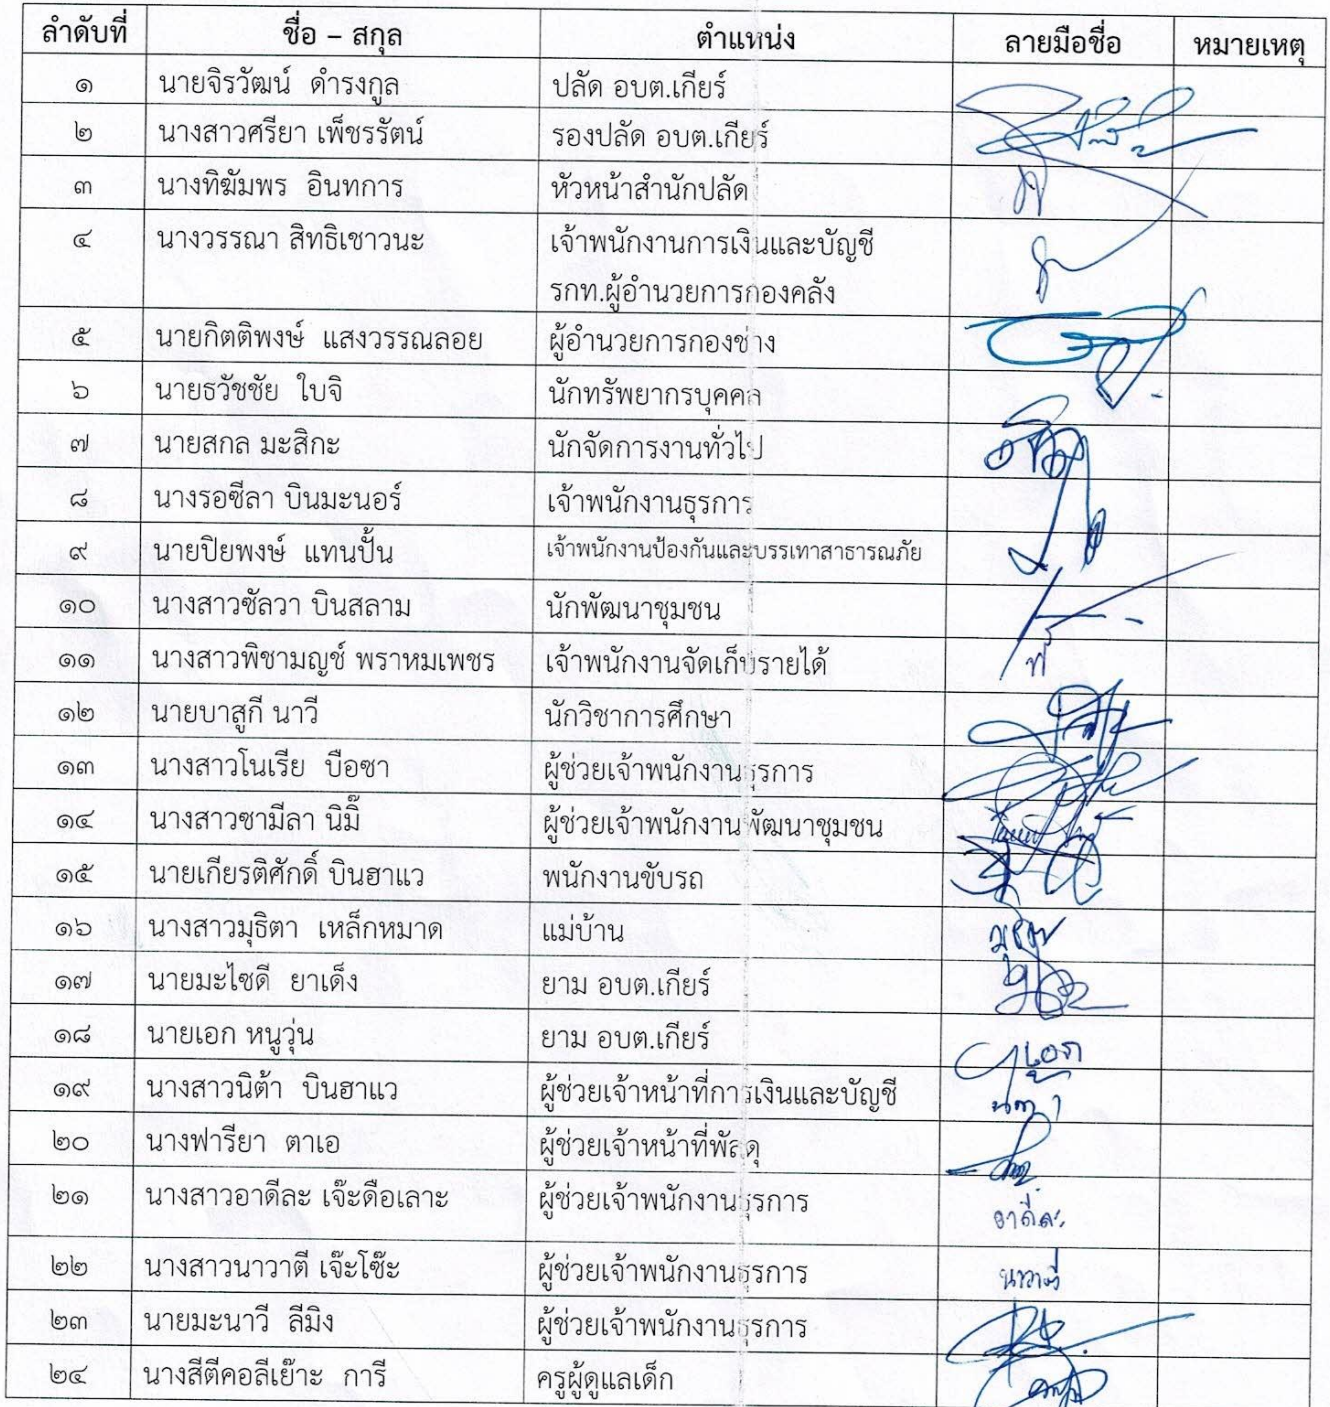 ลำดับที่ ชื่อ – สกุล ตำแหน่ง ลายมือชื่อ หมายเหตุ
๑ นายจิรวัฒน์ ดำรงกูล ปลัด อบต.เกียร์
๒ นางสาวศรียา เพ็ชรรัตน์ รองปลัด อบต.เกียร์
๓ นางทิฆัมพร อินทการ หัวหน้าสำนักปลัด
๔ นางวรรณา สิทธิเชาวนะ เจ้าพนักงานการเงินและบัญชี
รกท.ผู้อำนวยการกองคลัง
๕ นายกิตติพงษ์ แสงวรรณลอย ผู้อำนวยการกองช่าง
๖ นายธวัชชัย ใบจิ นักทรัพยากรบุคคล
๗ นายสกล มะสิกะ นักจัดการงานทั่วไป
๘ นางรอซีลา บินมะนอร์ เจ้าพนักงานธุรการ
๙ นายปิยพงษ์ แทนปั้น เจ้าพนักงานป้องกันและบรรเทาสาธารณภัย
๑๐ นางสาวซัลวา บินสลาม นักพัฒนาชุมชน
๑๑ นางสาวพิชามญช์ พราหมเพชร เจ้าพนักงานจัดเก็บรายได้
๑๒ นายบาสูกี นาวี นักวิชาการศึกษา
๑๓ นางสาวโนเรีย บือซา ผู้ช่วยเจ้าพนักงานธุรการ
๑๔ นางสาวซามีลา นิมิ๊ ผู้ช่วยเจ้าพนักงานพัฒนาชุมชน
๑๕ นายเกียรติศักดิ์ บินฮาแว พนักงานขับรถ
๑๖ นางสาวมุธิตา เหล็กหมาด แม่บ้าน
๑๗ นายมะไซดี ยาเด็ง ยาม อบต.เกียร์
๑๘ นายเอก หนูวุ่น ยาม อบต.เกียร์ เอก
๑๙ นางสาวนิต้า บินฮาแว ผู้ช่วยเจ้าหน้าที่การเงินและบัญชี
๒๐ นางฟารียา ตาเอ ผู้ช่วยเจ้าหน้าที่พัสดุ
๒๑ นางสาวอาดีละ เจ๊ะดือเลาะ ผู้ช่วยเจ้าพนักงานธุรการ อาดีละ
๒๒ นางสาวนาวาตี เจ๊ะโซ๊ะ ผู้ช่วยเจ้าพนักงานธุรการ นาวาตี
๒๓ นายมะนาวี ลีมิง ผู้ช่วยเจ้าพนักงานธุรการ
๒๔ นางสีตีคอลีเย๊าะ การี ครูผู้ดูแลเด็ก